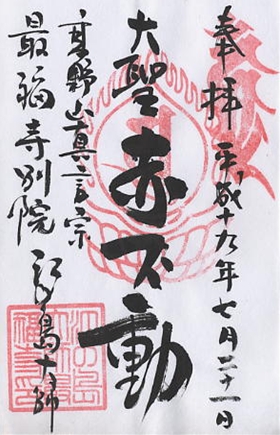 奉拝 平成十九年七月二十一日
大聖赤不動
高野山真言宗
最福寺別院 江の島大師